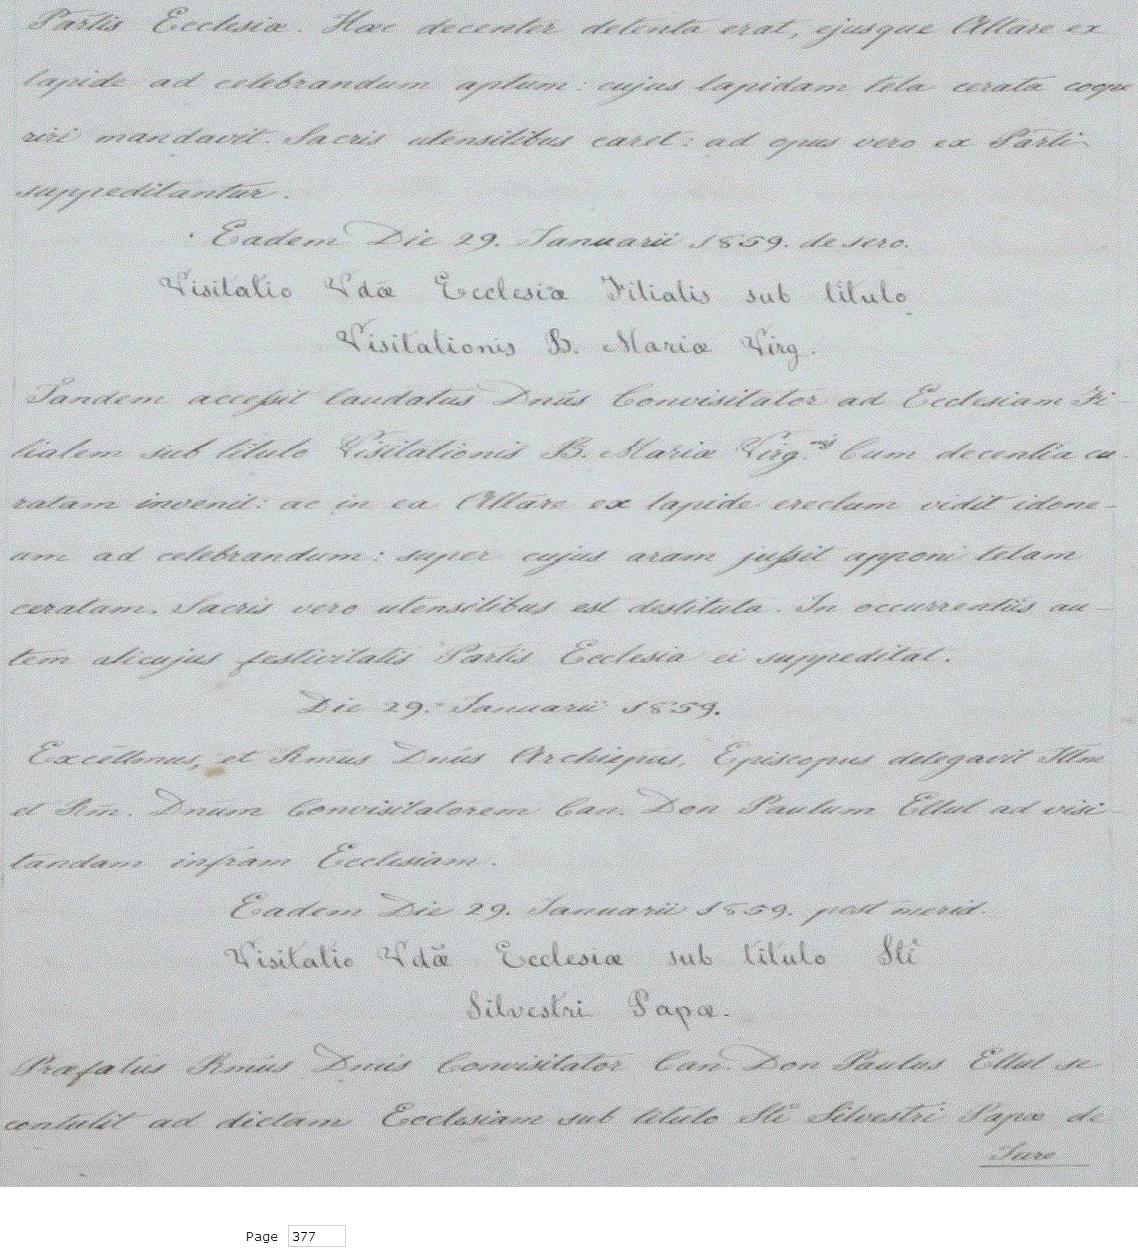 Partis Ecclesiæ. Hæc decenter detenta erat, ejusque Altare ex
lapide ad celebrandum aptum: cujus lapidam tela cerata coope
riri mandavit. Sacris utensilibus caret: ad opus vero ex Parti
suppeditantur.
Eadem Die 29. Januarii 1859. de sero.
Visitatio Vdæ Ecclesiæ Filialis sub titulo
Visitationis B. Mariæ Virg.
Tandem accessit laudatus Dnus Convisitator ad Ecclesiam Fi-
lialem sub titulo Visitationis B. Mariæ Virg. Cum decentia cu-
ratam invenit: ac in ea Altare ex lapide erectum vidit idone-
um ad celebrandum: super cujus aram jussit apponi telam
ceratam. Sacris vero utensilibus est destituta. In occurrentiis au-
tem alicujus festivitatis Partis Ecclesia ei suppeditat.
Die 29. Januarii 1859.
Excellmus, et Rmus Dnus Archiepus, Episcopus delegavit Illm
et Rm. Dnum Convisitatorem Can. Don Paulum Ellul ad visi-
tandam infram Ecclesiam.
Eadem Die 29. Januarii 1859. post merid.
Visitatio Vdæ Ecclesiæ sub titulo Sti
Silvestri Papæ.
Præfatus Rmus Dnus Convisitator Can. Don Paulus Ellul se
contulit ad dictam Ecclesiam sub titulo Sti Silvestri Papæ de
Jure
Page 377